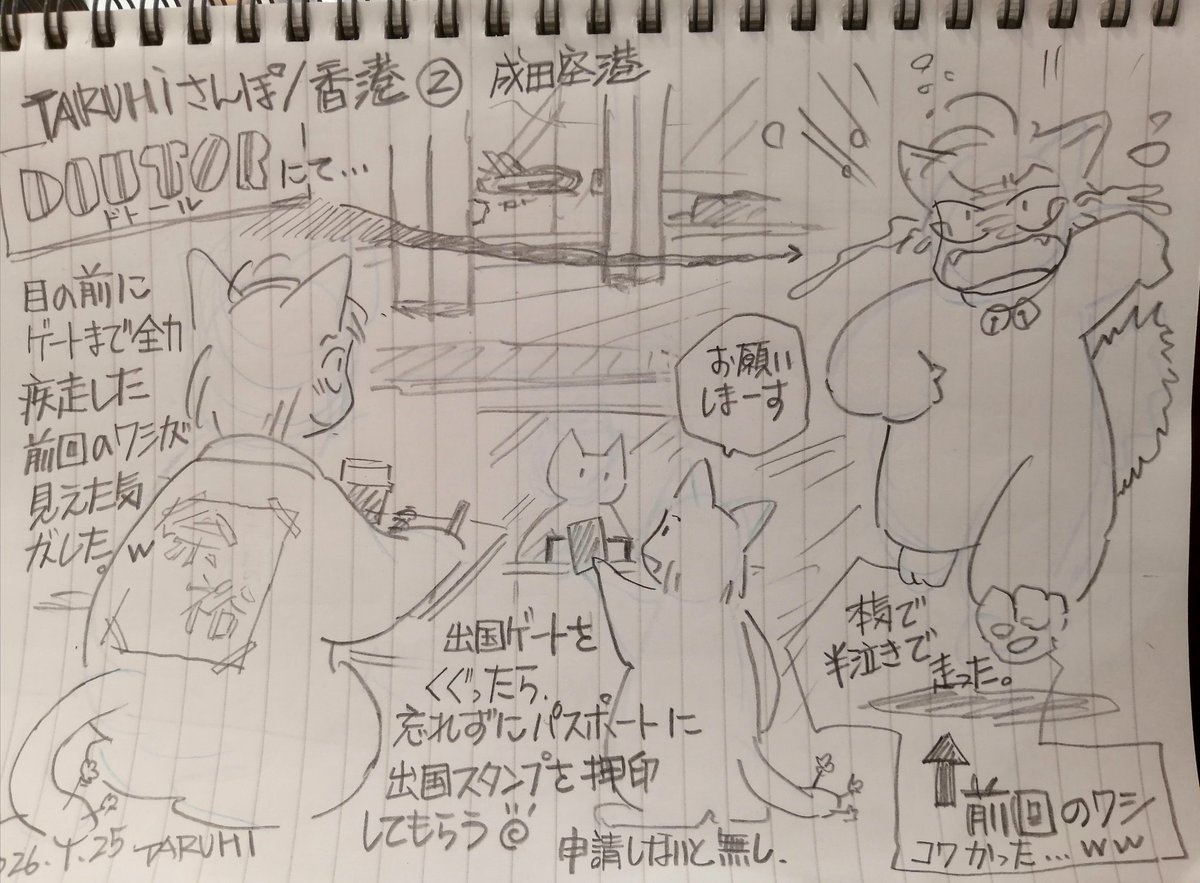 TARUHiさんぽ/香港② 成田空港
DOUTORにて…
ドトール
目の前に
ゲートまで全力
疾走した
前回のワシが
見えた気
がした。w
余裕
お願い
しまーす
本気で
半泣きで
走った。
出国ゲートを
くぐったら、
忘れずにパスポートに
出国スタンプを押印
してもらう
申請しないと無し.
前回のワシ
コワかった…ww
026.4.25 TARUHI